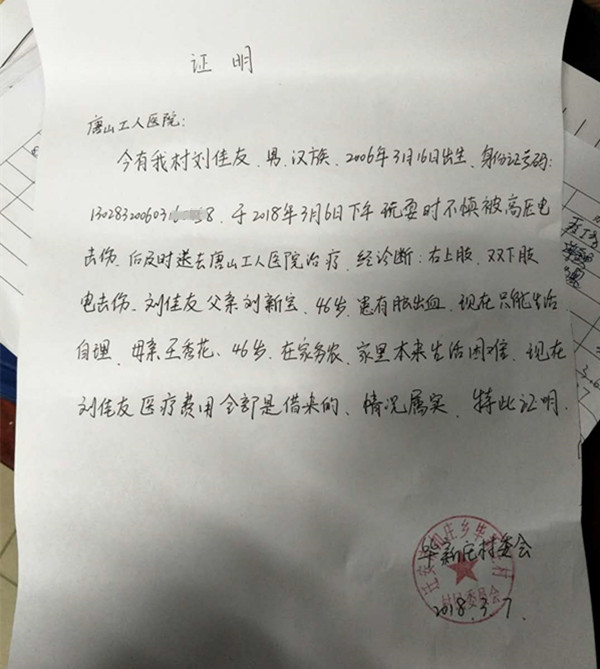 证明
唐山工人医院:
今有我村刘佳友、男、汉族、2006年3月16日出生、身份证号码:
130283200603 8、于2018年3月6日下午玩耍时不慎被高压电
击伤、后及时送去唐山工人医院治疗、经诊断:右上肢、双下肢
电击伤、刘佳友父亲刘新宝、46岁、患有脑出血、现在只能生活
自理、母亲王秀花、46岁、在家务农、家里本来生活困难、现在
刘佳友医疗费用全部是借来的、情况属实、特此证明.
毕新庄村委会
2018.3.7.
村民委员会